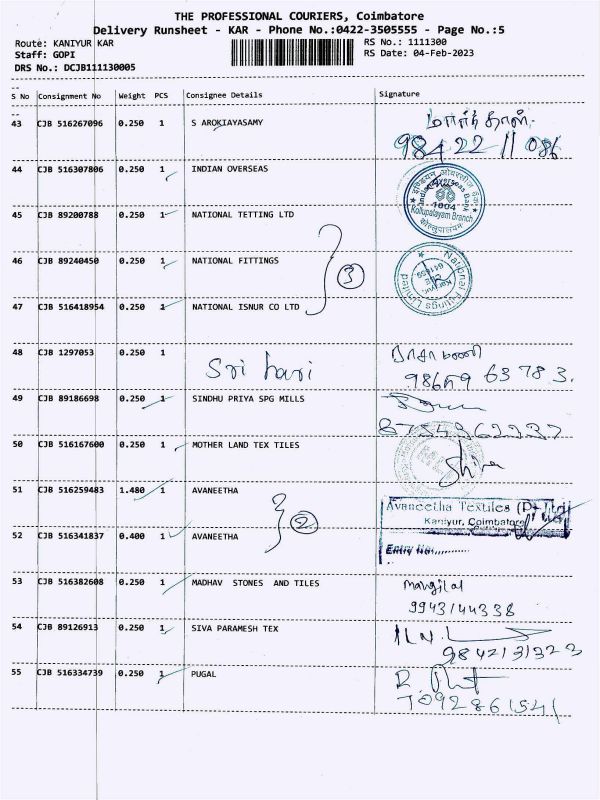 THE PROFESSIONAL COURIERS, Coimbatore
Delivery Runsheet - KAR - Phone No.:0422-3505555 - Page No.:5
Route: KANIYUR KAR
RS No.: 1111300
Staff: GOPI
RS Date: 04-Feb-2023
DRS No.: DCJB111130005
S No Consignment No Weight PCS Consignee Details Signature
43 CJB 516267096 0.250 1 S AROKIAYASAMY
98422 11 086
44 CJB 516307806 0.250 1 INDIAN OVERSEAS
Indian Overseas Bank
1004
Kollupalayam Branch
45 CJB 89200788 0.250 1 NATIONAL TETTING LTD
46 CJB 89240450 0.250 1 NATIONAL FITTINGS
3
National Fittings Limited
47 CJB 516418954 0.250 1 NATIONAL ISNUR CO LTD
48 CJB 1297053 0.250 1
Sri hari
49 CJB 89186698 0.250 1 SINDHU PRIYA SPG MILLS
50 CJB 516167600 0.250 1 MOTHER LAND TEX TILES
Shiva
51 CJB 516259483 1.480 1 AVANEETHA
Avaneetha Textiles (P) Ltd
Kaniyur, Coimbatore
2
52 CJB 516341837 0.400 1 AVANEETHA
Entry No.
53 CJB 516382608 0.250 1 MADHAV STONES AND TILES
mangilal
9943144338
54 CJB 89126913 0.250 1 SIVA PARAMESH TEX
9842131323
55 CJB 516334739 0.250 1 PUGAL
7092861541